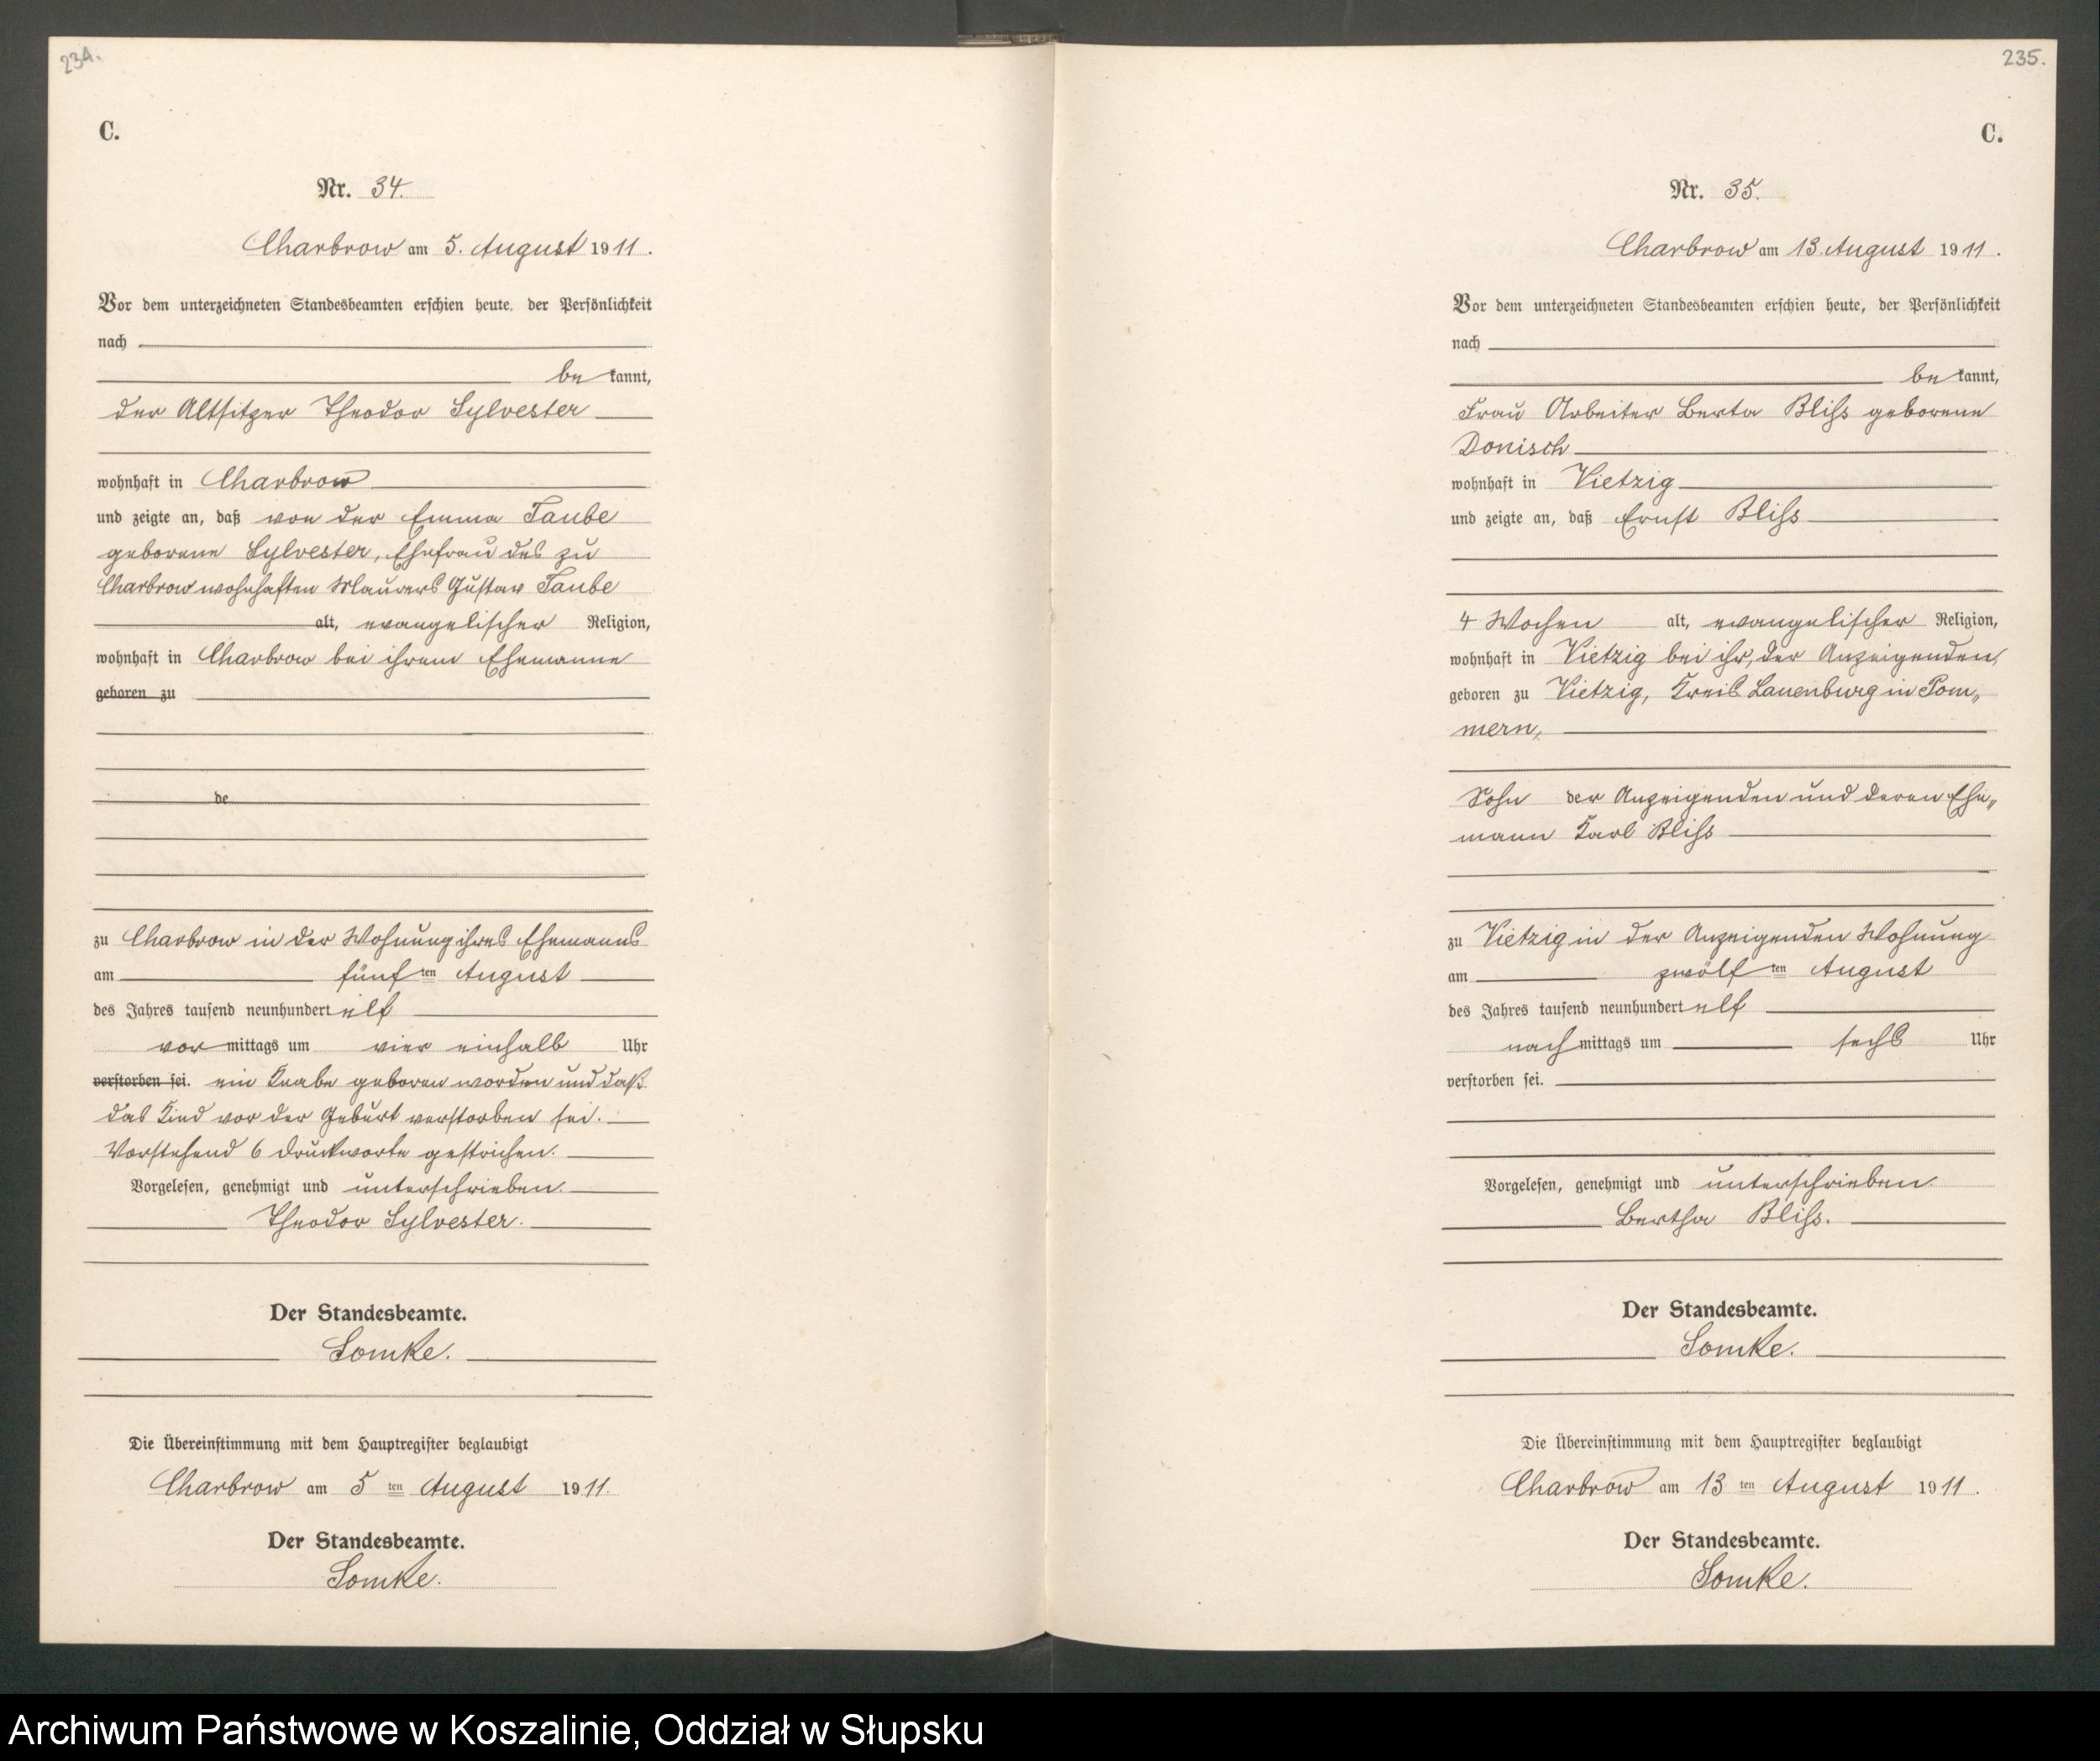 234.
C.
Nr. 34.
Charbrow am 5. August 1911.
Vor dem unterzeichneten Standesbeamten erschien heute, der Persönlichkeit
nach
be kannt,
der Altsitzer Theodor Sylvester
wohnhaft in Charbrow
und zeigte an, daß von der Emma Taube
geborene Sylvester, Ehefrau des zu
Charbrow wohnhaften Maurers Gustav Taube
alt, evangelischer Religion,
wohnhaft in Charbrow bei ihrem Ehemanne
geboren zu
de
zu Charbrow in der Wohnung ihres Ehemanns
am fünf ten August
des Jahres tausend neunhundert elf
vor mittags um vier einhalb Uhr
verstorben sei. ein Knabe geboren worden und daß
das Kind vor der Geburt verstorben sei.
Vorstehend 6 Druckworte gestrichen.
Vorgelesen, genehmigt und unterschrieben.
Theodor Sylvester.
Der Standesbeamte.
Somke.
Die Übereinstimmung mit dem Hauptregister beglaubigt
Charbrow am 5 ten August 1911.
Der Standesbeamte.
Somke.
235.
C.
Nr. 35.
Charbrow am 13. August 1911.
Vor dem unterzeichneten Standesbeamten erschien heute, der Persönlichkeit
nach
be kannt,
Frau Arbeiter Berta Bliß geborene
Donisch
wohnhaft in Vietzig
und zeigte an, daß Ernst Bliß
4 Wochen alt, evangelischer Religion,
wohnhaft in Vietzig bei ihr, der Anzeigenden,
geboren zu Vietzig, Kreis Lauenburg in Pom„
mern,
Sohn der Anzeigenden und deren Ehe„
mann Karl Bliß
zu Vietzig in der Anzeigenden Wohnung
am zwölf ten August
des Jahres tausend neunhundert elf
nach mittags um sechs Uhr
verstorben sei.
Vorgelesen, genehmigt und unterschrieben.
Bertha Bliß.
Der Standesbeamte.
Somke.
Die Übereinstimmung mit dem Hauptregister beglaubigt
Charbrow am 13 ten August 1911.
Der Standesbeamte.
Somke.
Archiwum Państwowe w Koszalinie, Oddział w Słupsku